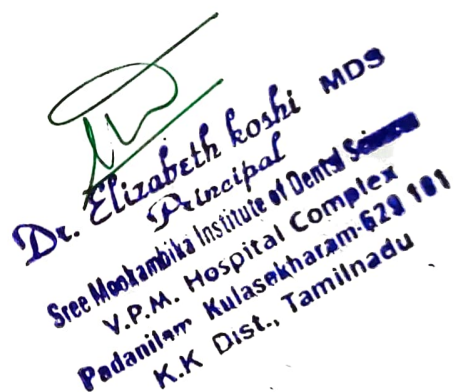 Dr. Elizabeth Koshi MDS
Principal
Sree Mookambika Institute of Dental Science
V.P.M. Hospital Complex
Padanilam Kulasekharam-629 161
K.K Dist., Tamilnadu